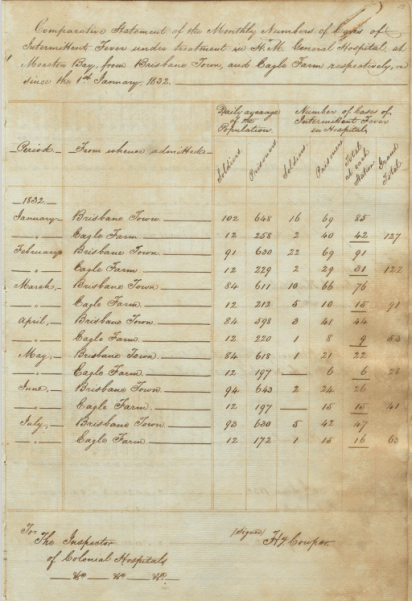 Comparative Statement of the Monthly Numbers of Cases of
Intermittent Fever under treatment in H.M. General Hospital, at
Moreton Bay, from Brisbane Town, and Eagle Farm respectively,
since the 1st January 1832.
Daily average of the Population Number of Cases of Intermittent Fever in Hospital,
Period From whence admitted Soldiers Prisoners Soldiers Prisoners Total at each Station Grand Total
1832.
January Brisbane Town 102 648 16 69 85
" Eagle Farm 12 258 2 40 42 127
February Brisbane Town 91 630 22 69 91
" Eagle Farm 12 229 2 29 31 122
March, Brisbane Town 84 611 10 66 76
" Eagle Farm 12 212 5 10 15 91
April, Brisbane Town 84 598 3 41 44
" Eagle Farm 12 220 1 8 9 53
May, Brisbane Town 84 618 1 21 22
" Eagle Farm 12 197 — 6 6 28
June, Brisbane Town 94 643 2 24 26
" Eagle Farm 12 197 — 15 15 41
July, Brisbane Town 93 630 5 42 47
" Eagle Farm 12 172 1 15 16 63
For
The Inspector
of Colonial Hospitals
(signed) Hy Cowper.